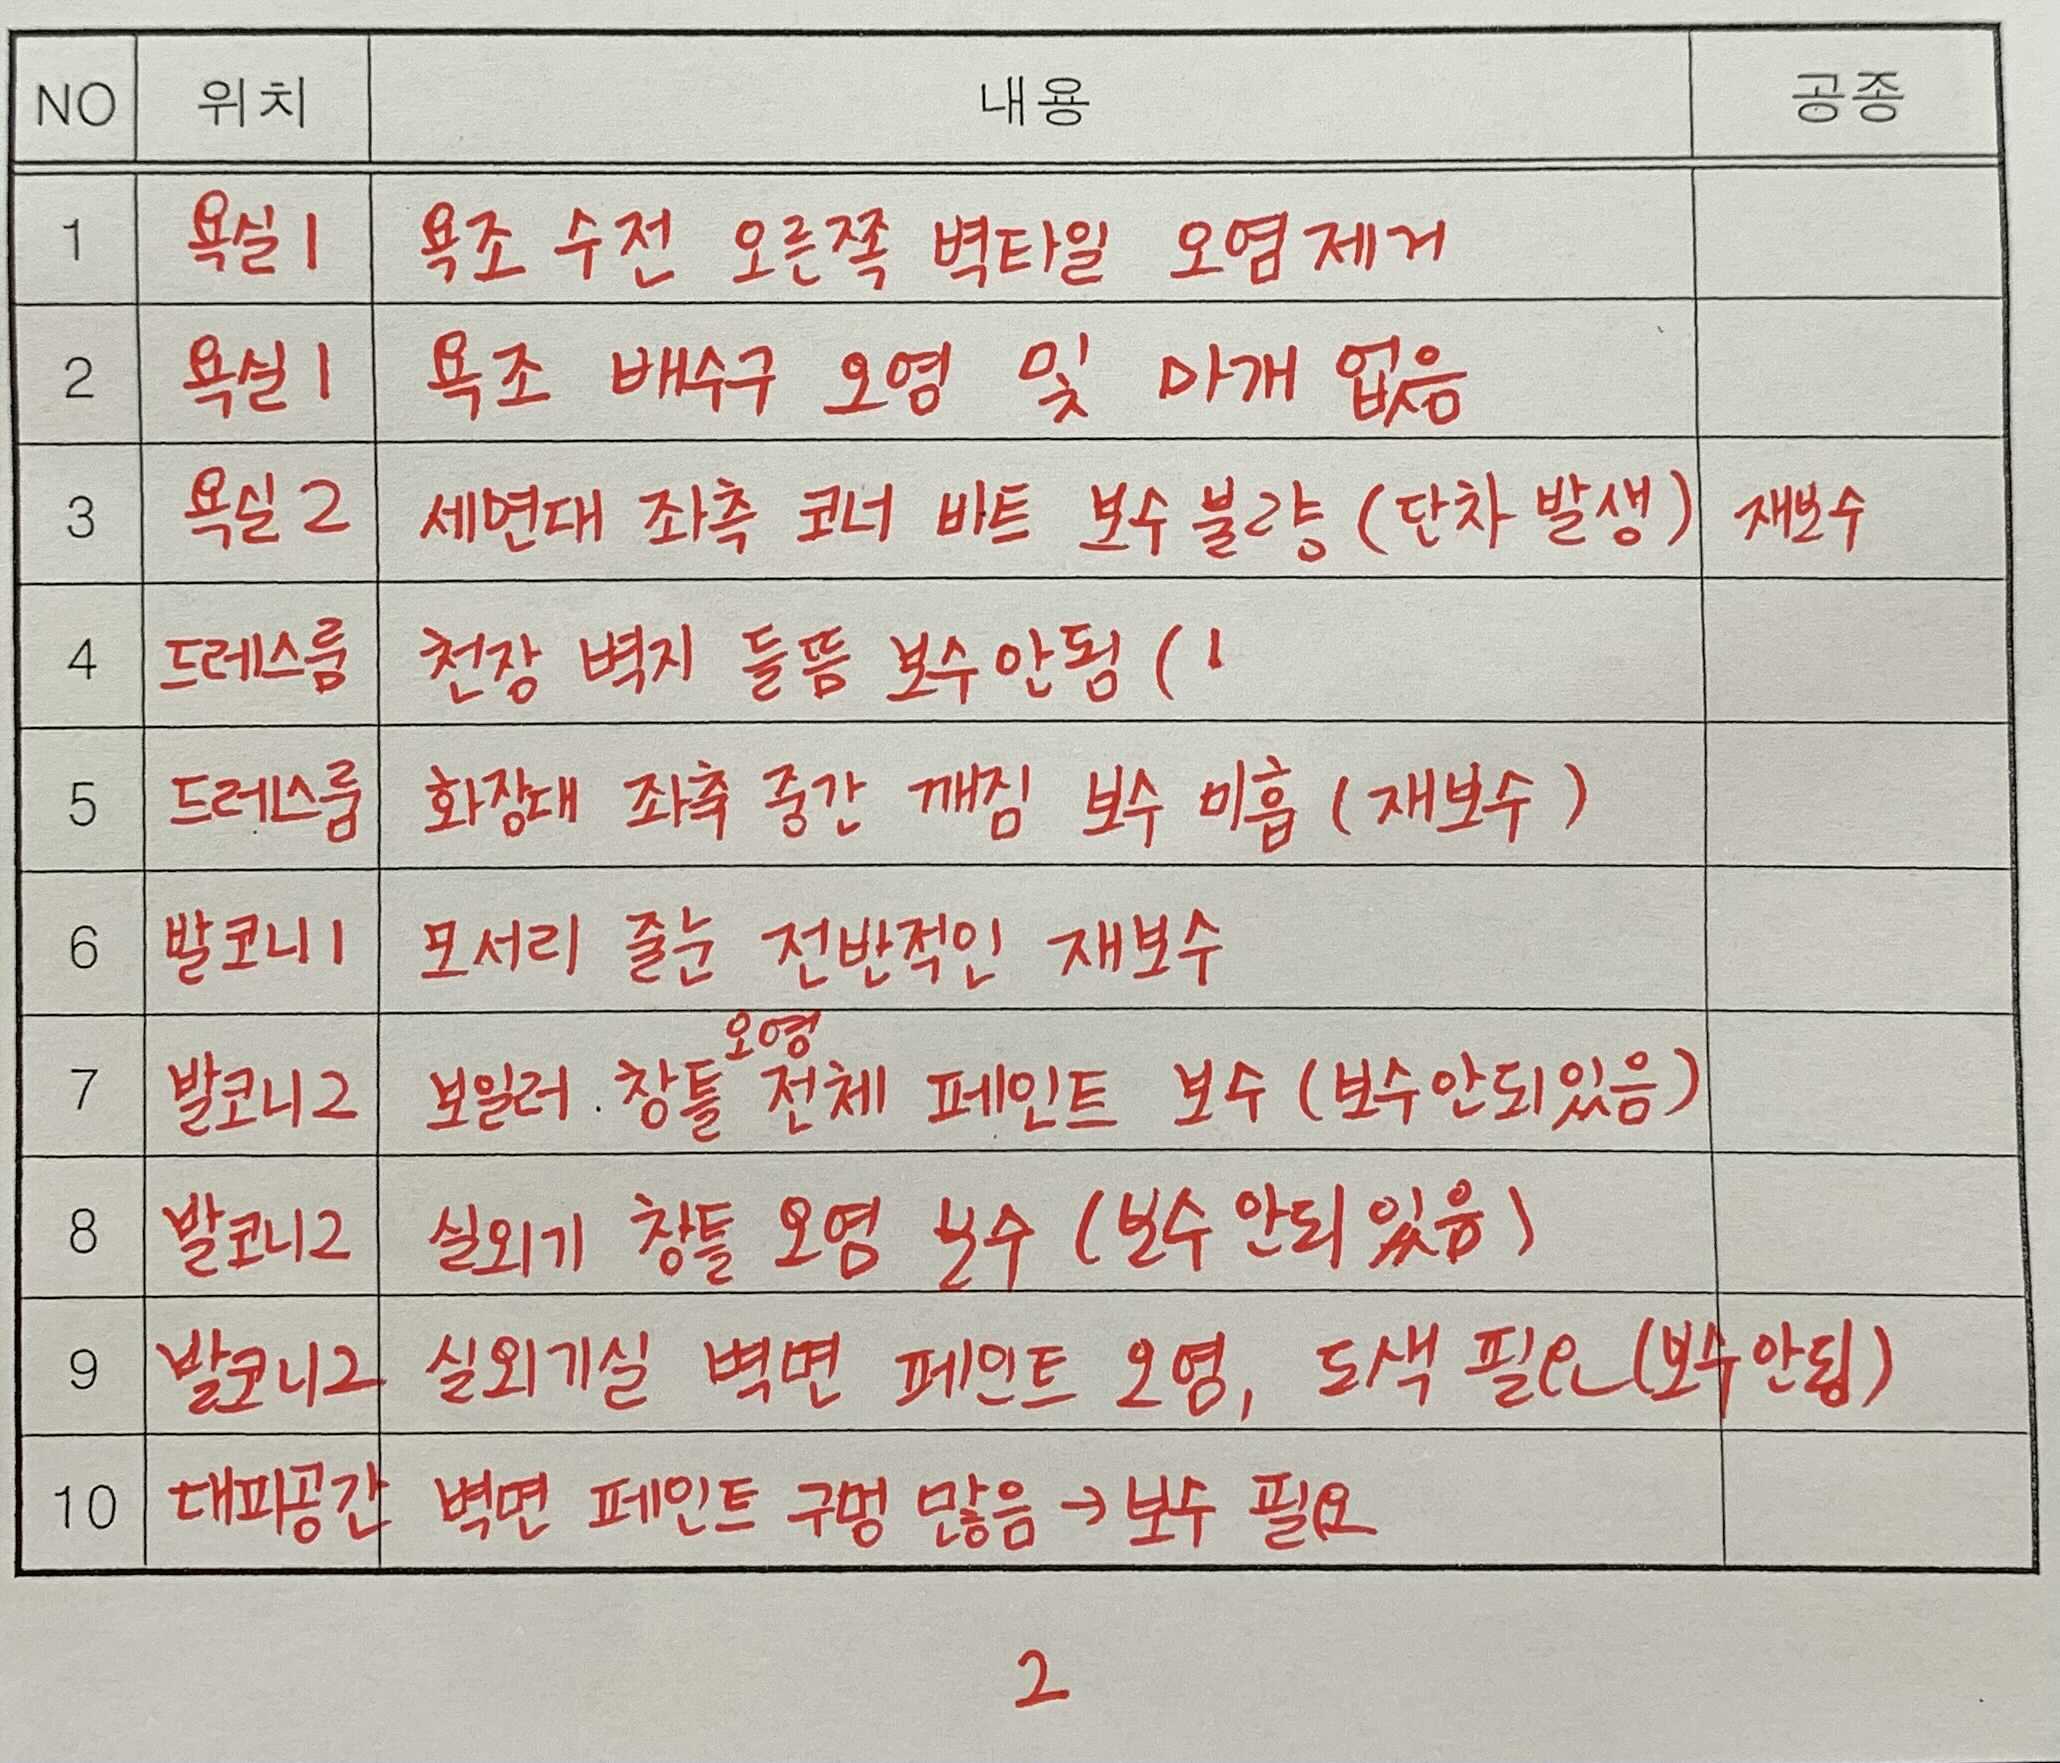 NO 위치 내용 공종
1 욕실1 욕조 수전 오른쪽 벽타일 오염제거
2 욕실1 욕조 배수구 오염 및 마개 없음
3 욕실2 세면대 좌측 코너 바트 보수불량 (단차 발생) 재보수
4 드레스룸 천장 벽지 들뜸 보수안됨 (
5 드레스룸 화장대 좌측 중간 깨짐 보수 미흡 (재보수)
6 발코니1 모서리 줄눈 전반적인 재보수
오염
7 발코니2 보일러 창틀 전체 페인트 보수 (보수안되있음)
8 발코니2 실외기 창틀 오염 보수 (보수안되있음)
9 발코니2 실외기실 벽면 페인트 오염, 도색 필요 (보수안됨)
10 대피공간 벽면 페인트 구멍 많음 → 보수 필요
2